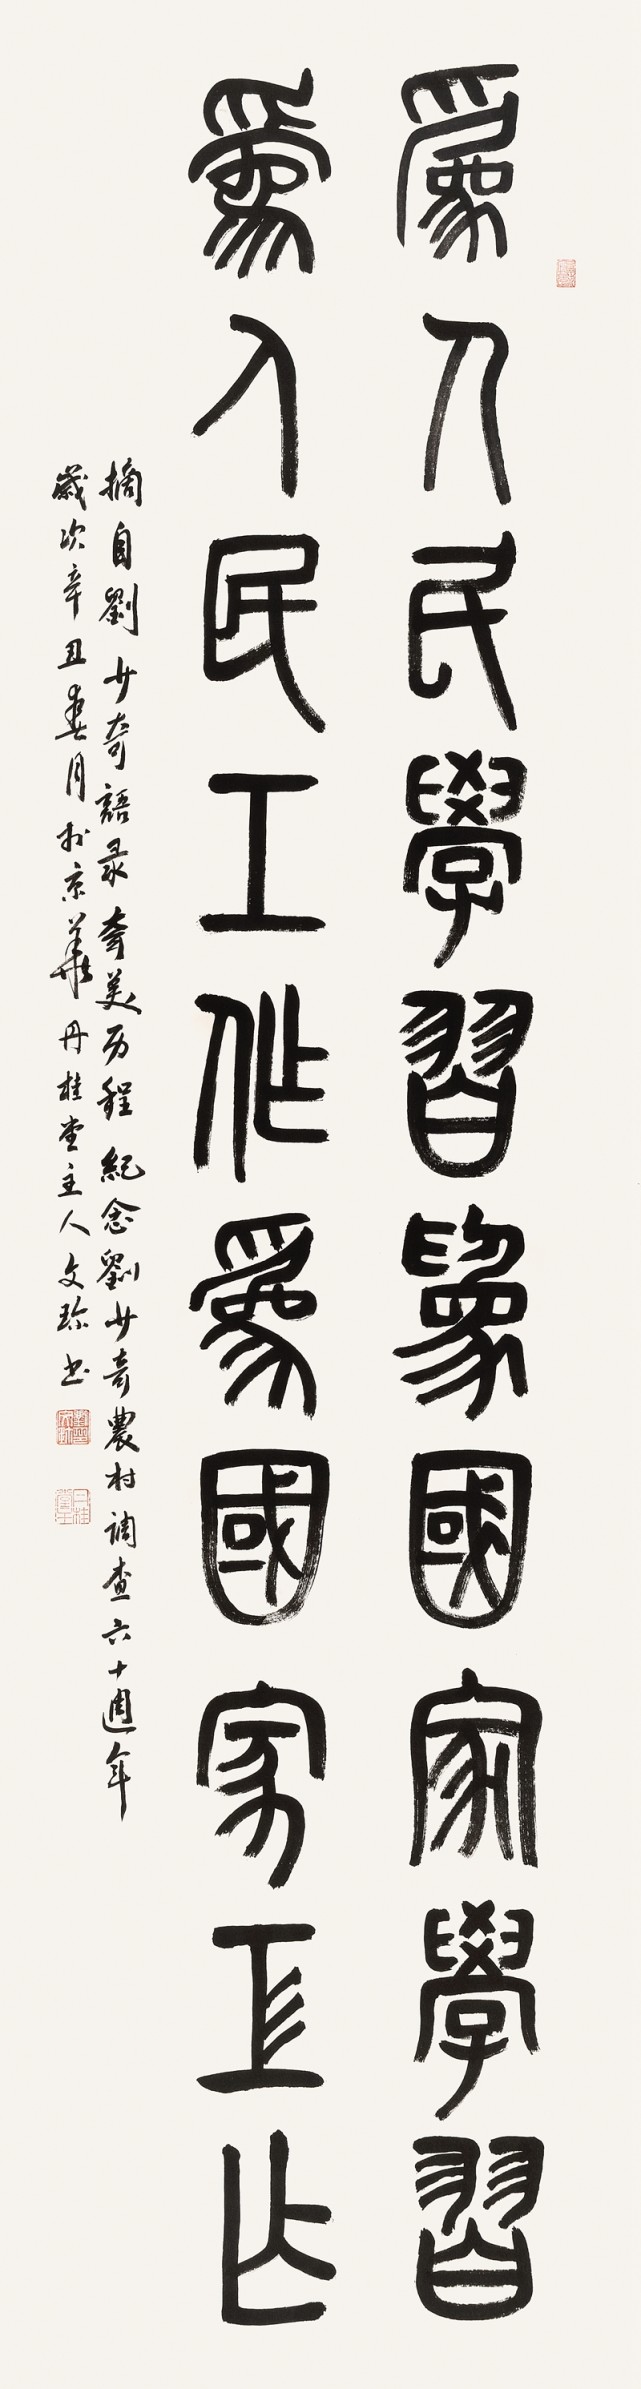 為人民學習為國家學習
為人民工作為國家工作
摘自劉少奇語录奋美历程紀念劉少奇農村调查六十週年
歲次辛丑春月於京華丹桂堂主人文珍书